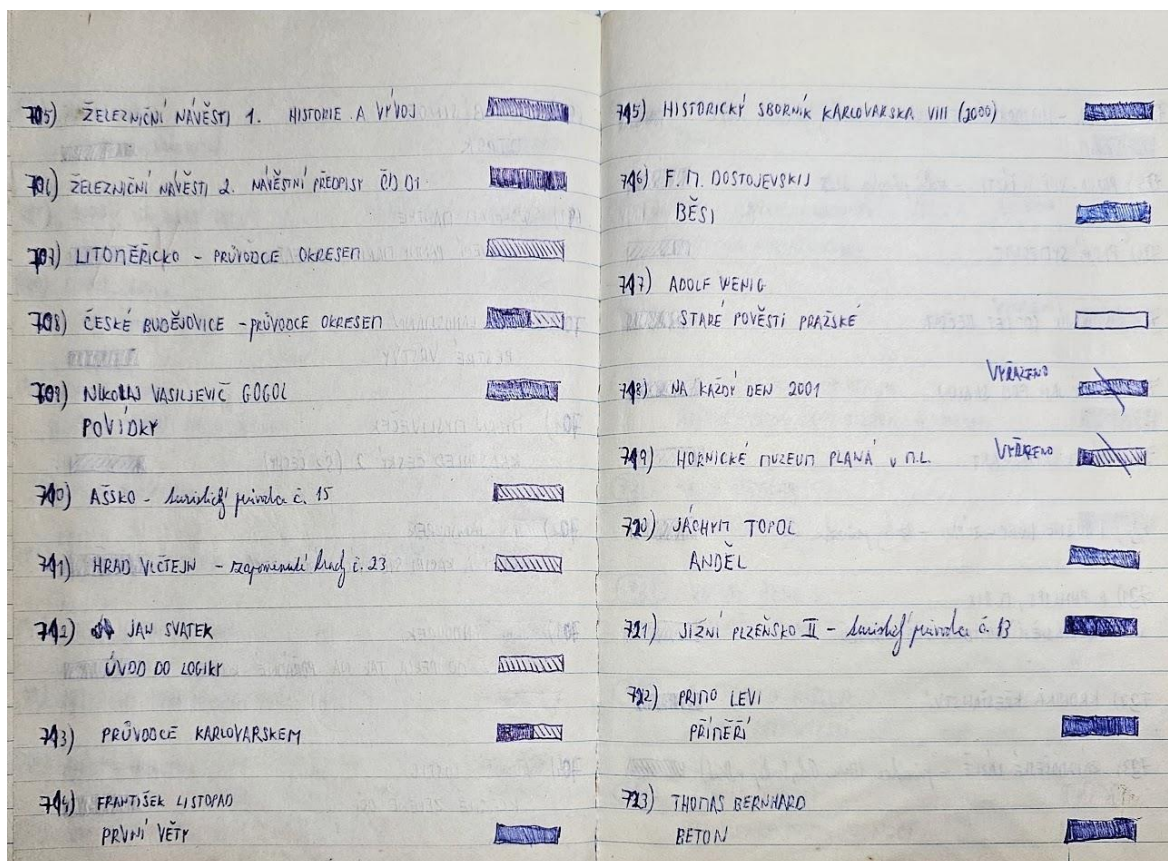 705) ŽELEZNIČNÍ NÁVĚSTI 1. HISTORIE A VÝVOJ
706) ŽELEZNIČNÍ NÁVĚSTI 2. NÁVĚSTNÍ PŘEDPISY ČD D1
707) LITOMĚŘICKO - PRŮVODCE OKRESEM
708) ČESKÉ BUDĚJOVICE - PRŮVODCE OKRESEM
709) NIKOLAJ VASILJEVIČ GOGOL
POVÍDKY
710) AŠSKO - turistický průvodce č. 15
711) HRAD VLČTEJN - zapomenuté hrady č. 23
712) JAN SVATEK
ÚVOD DO LOGIKY
713) PRŮVODCE KARLOVARSKEM
714) FRANTIŠEK LISTOPAD
PRVNÍ VĚTY
715) HISTORICKÝ SBORNÍK KARLOVARSKA VIII (2000)
716) F. M. DOSTOJEVSKIJ
BĚSI
717) ADOLF WENIG
STARÉ POVĚSTI PRAŽSKÉ
VYŘAZENO
718) NA KAŽDÝ DEN 2001
719) HORNICKÉ MUZEUM PLANÁ u M.L. VYŘAZENO
720) JÁCHYM TOPOL
ANDĚL
721) JIŽNÍ PLZEŇSKO II - turistický průvodce č. 13
722) PRIMO LEVI
PŘÍMĚŘÍ
723) THOMAS BERNHARD
BETON